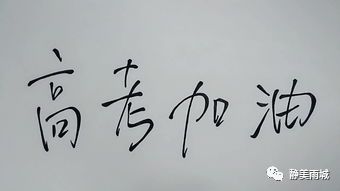 高考加油
静美雨城